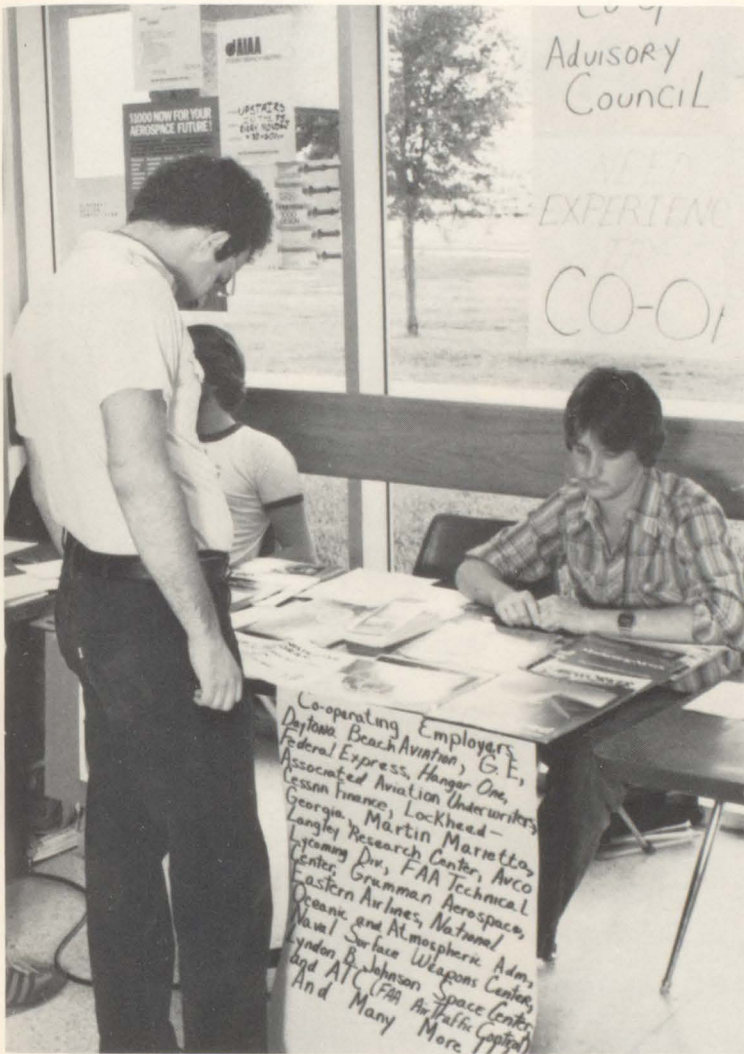 AIAA
$1000 NOW FOR YOUR
AEROSPACE FUTURE!
UPSTAIRS
EVERY MONDAY
Advisory
Council
NEED
EXPERIENC
TRY
CO-O
Co-operating Employers
Daytona Beach Aviation, G.E,
Federal Express, Hangar One,
Associated Aviation Underwriters,
Cessna Finance, Lockheed-
Georgia, Martin Marietta,
Langley Research Center, Avco
Lycoming Div, FAA Technical
Center, Grumman Aerospace,
Eastern Airlines, National
Oceanic and Atmospheric Adm,
Naval Surface Weapons Center,
Lyndon B. Johnson Space Center,
and ATC (FAA Air Traffic Control)
And Many More !!!